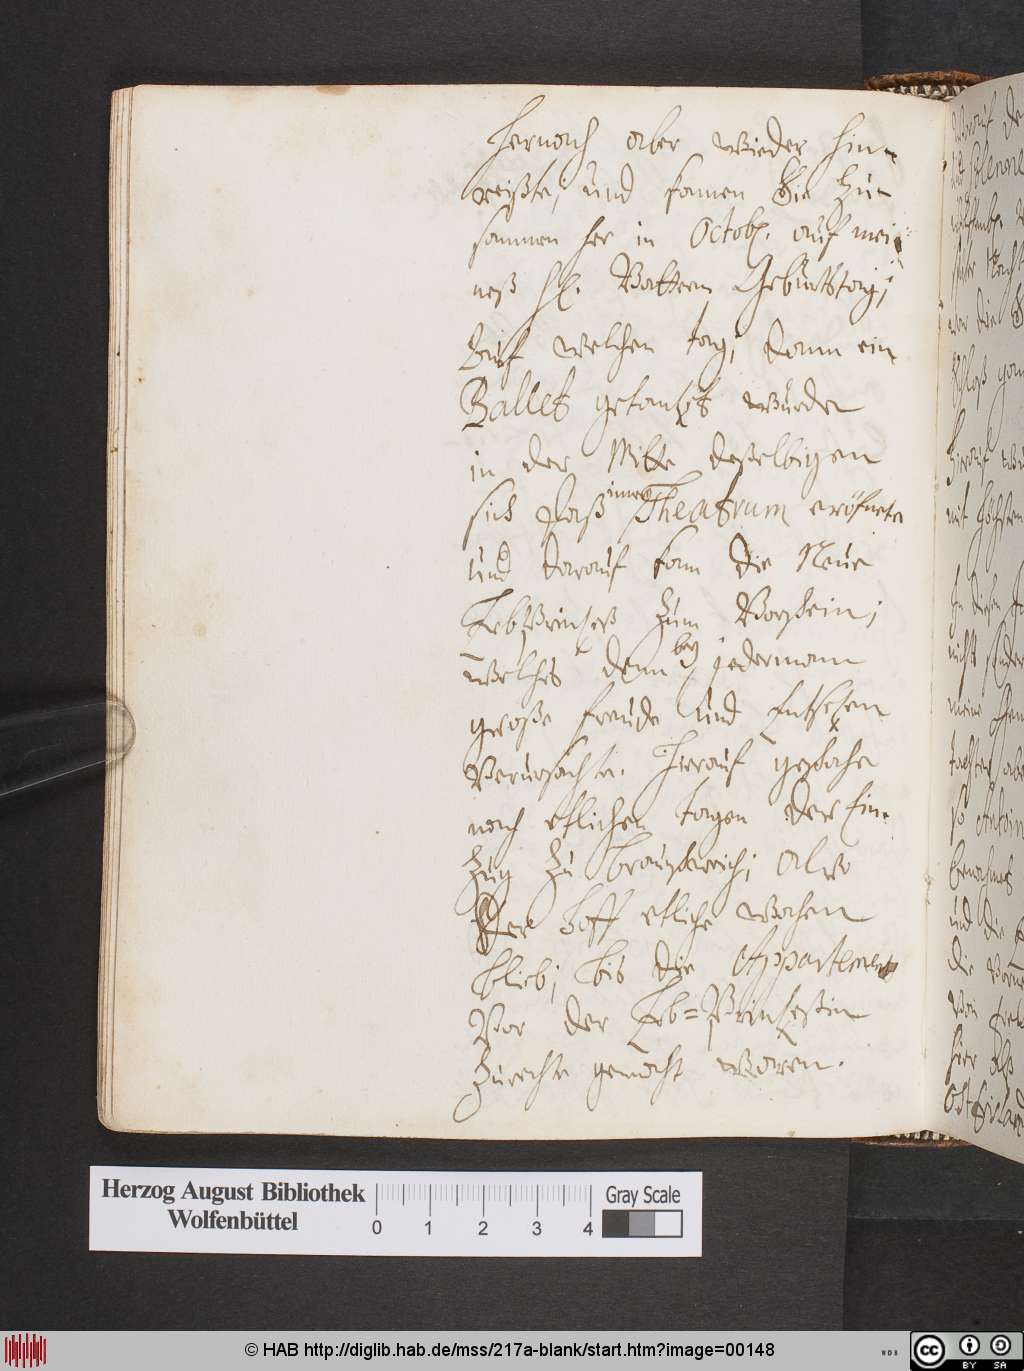 hernach aber wieder hin-
reißte; und kamen Sie zu-
sammen her in Octobr. auf mei-
neß hl. Vattern Gebuhrtstag;
Auf welchen tag; dann ein
Ballet getantzt wurde
in der Mitte deßelbigen
sich daß inner Theatrum eröfnete
und darauf kam die Neue
ErbPrinzeß zum Vorschein;
welches denn bey jedermann
große freude und Entsetzen
Verursachte. Hierauf geschahe
nach etlichen tagen der Ein-
zug zu Braunschweich; Alwo
Der Hoff etliche wochen
blieb; bis die Appartement
Vor der Erb=Prinzeßin
zurechte gemacht waren.
Herzog August Bibliothek
Wolfenbüttel
0 1 2 3 4
Gray Scale
© HAB http://diglib.hab.de/mss/217a-blank/start.htm?image=00148
WDB
cc BY SA